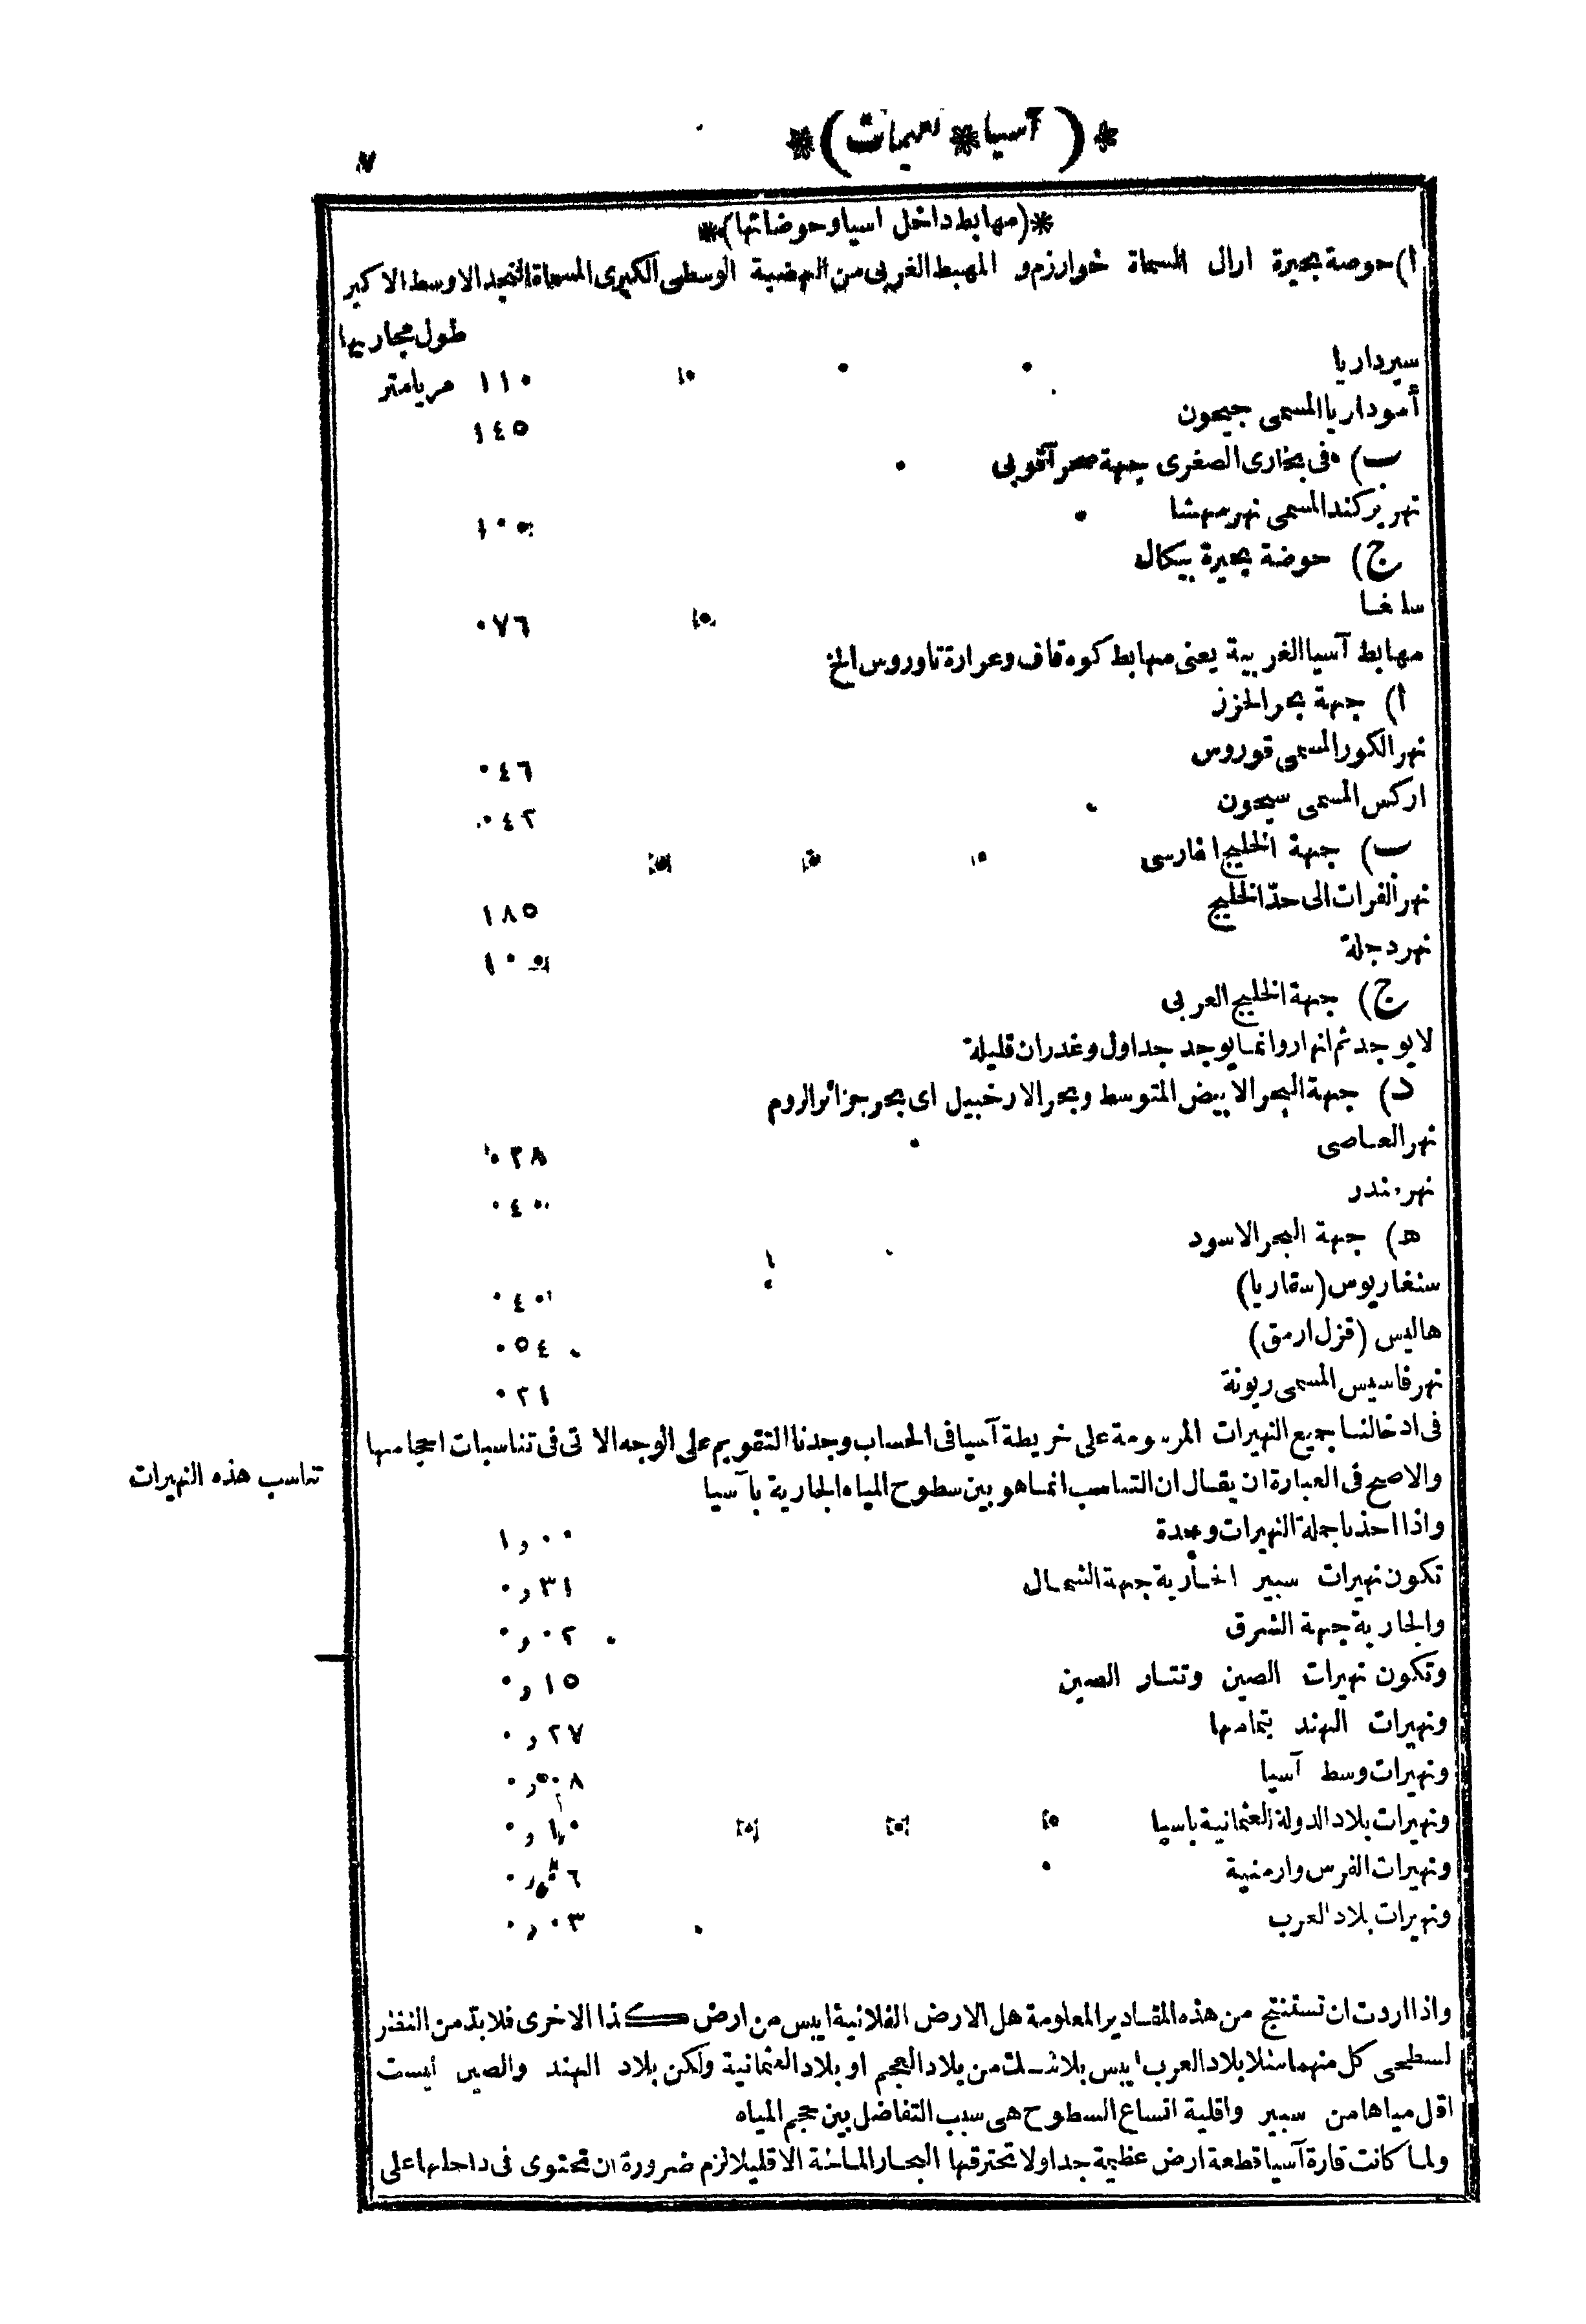 *( آسيا * تعميمات )*
٧
*(مهابط داخل اسيا وحوضاتها)*
ا) حوضة بحيرة ارال المسماة خوارزم و المهبط الغربى من الهضبة الوسطى الكبرى المسماة النجد الاوسط الاكبر
طول مجاريها
سيرداريا ١١٠ مريامتر
أموداريا المسمى جيحون ١٤٥
ب) فى بخارى الصغرى جهة صحرآ قوبى
نهر يركند المسمى نهر مهشا ١٠٥
ج) حوضة بحيرة بيكال
سلنغا ٠٧٦
مهابط آسيا الغربية يعنى مهابط كوه قاف وعرارة تاوروس الخ
ا) جهة بحر الخزز
نهر الكور المسمى قوروس ٠٤٦
اركس المسمى سيحون ٠٤٢
ب) جهة الخليج الفارسى
نهر الفرات الى حدّ الخليج ١٨٥
نهر دجلة ١٠٥
ج) جهة الخليج العربى
لا يوجد ثم انهار وانما يوجد جداول وغدران قليلة
د) جهة البحر الابيض المتوسط وبحر الارخبيل اى بحر جزائر الروم
نهر العاصى ٠٣٨
نهر مندر ٠٤٠
ه) جهة البحر الاسود
سنغاريوس (سقاريا) ٠٤٠
هاليس (قزل ارمق) ٠٥٤
نهر فاسيس المسمى ريونة ٠٢١
فى ادخالنا جميع النهيرات المرسومة على خريطة آسيا فى الحساب وجدنا التقويم على الوجه الاتى فى تناسبات احجامها
تناسب هذه النهيرات
والاصح فى العبارة ان يقال ان التناسب انما هو بين سطوح المياه الجارية بآسيا
واذا اخذنا جملة النهيرات وحدة ١,٠٠
تكون نهيرات سبير الجارية جهة الشمال ٠,٣١
والجارية جهة الشرق ٠,٠٢
وتكون نهيرات الصين وتتار الصين ٠,١٥
ونهيرات الهند بتمامها ٠,٢٧
ونهيرات وسط آسيا ٠,٠٨
ونهيرات بلاد الدولة العثمانية باسيا ٠,١٠
ونهيرات الفرس وارمنية ٠,٠٦
ونهيرات بلاد العرب ٠,٠٣
واذا اردت ان تستنتج من هذه المقادير المعلومة هل الارض الفلانية ايبس من ارض كذا الاخرى فلا بدّ من النظر
لسطحى كل منهما مثلا بلاد العرب ايبس بلا شك من بلاد العجم او بلاد العثمانية ولكن بلاد الهند والصين ليست
اقل مياها من سبير واقلية اتساع السطوح هى سبب التفاضل بين حجم المياه
ولما كانت قارة آسيا قطعة ارض عظيمة جدا ولا تخترقها البحار المالحة الا قليلا لزم ضرورة ان تحتوى فى داخلها على